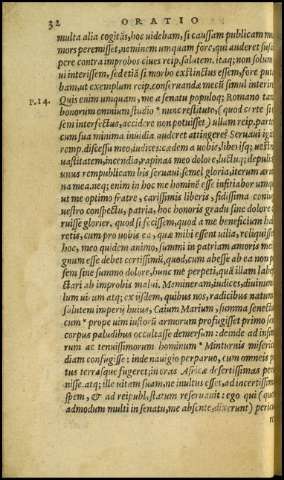 32 ORATIO
multa alia cogitās, hoc uidebam, si caussam publicam m
mors peremisset, neminem umquam fore, qui auderet susci
pere contra improbos ciues reip. salutem. itaq; non solum
ui interissem, sed etiā si morbo exstinctus essem, fore puta
bam, ut exemplum reip. conseruandæ mecū simul interir
P. 14. Quis enim umquam, me a senatu populoq; Romano tam
bonorum omnium studio * nunc restituto, (quod certe si
sem interfectus, accidere non potuisset) ullam reip. parte
cum sua minima inuidia auderet attingere? Seruaui igit
remp. discessu meo, iudices: cædem a uobis, liberisq; uestris
uastitatem, incendia, rapinas meo dolore, luctuq; depuli
unus rempublicam bis seruaui: semel gloria, iterum ærum
na mea. neq; enim in hoc me hominē esse infitiabor umqu
ut me optimo fratre, carissimis liberis, fidissima coniug
uestro conspectu, patria, hoc honoris gradu sine dolore c
ruisse glorier. quod si fecissem, quod a me beneficium ha
retis, cum pro uobis ea, quæ mihi essent uilia, reliquisse
hoc, meo quidem animo, summi in patriam amoris me
gnum esse debet certissimū, quod, cum abesse ab ea non po
sem sine summo dolore, hunc me perpeti, quā illam labe
ctari ab improbis malui. Memineram, iudices, diuinum
lum uirum atq; ex iisdem, quibus nos, radicibus natum
salutem imperij huius, Caium Marium, summa senectu
cum * prope uim iustorū armorum profugisset primo se
corpus paludibus occultasse demersum: deinde ad infi
rum ac tenuissimorum hominum * Minturnis miseric
diam confugisse: inde nauigio perparuo, cum omneis p
tus terrasque fugeret, in oras Africæ desertissimas per
nisse. atq; ille uitam suam, ne inultus esset, ad incertissim
spem, & ad reipubl. statum reseruauit: ego qui (que
admodum multi in senatu, me absente, dixerunt) peric